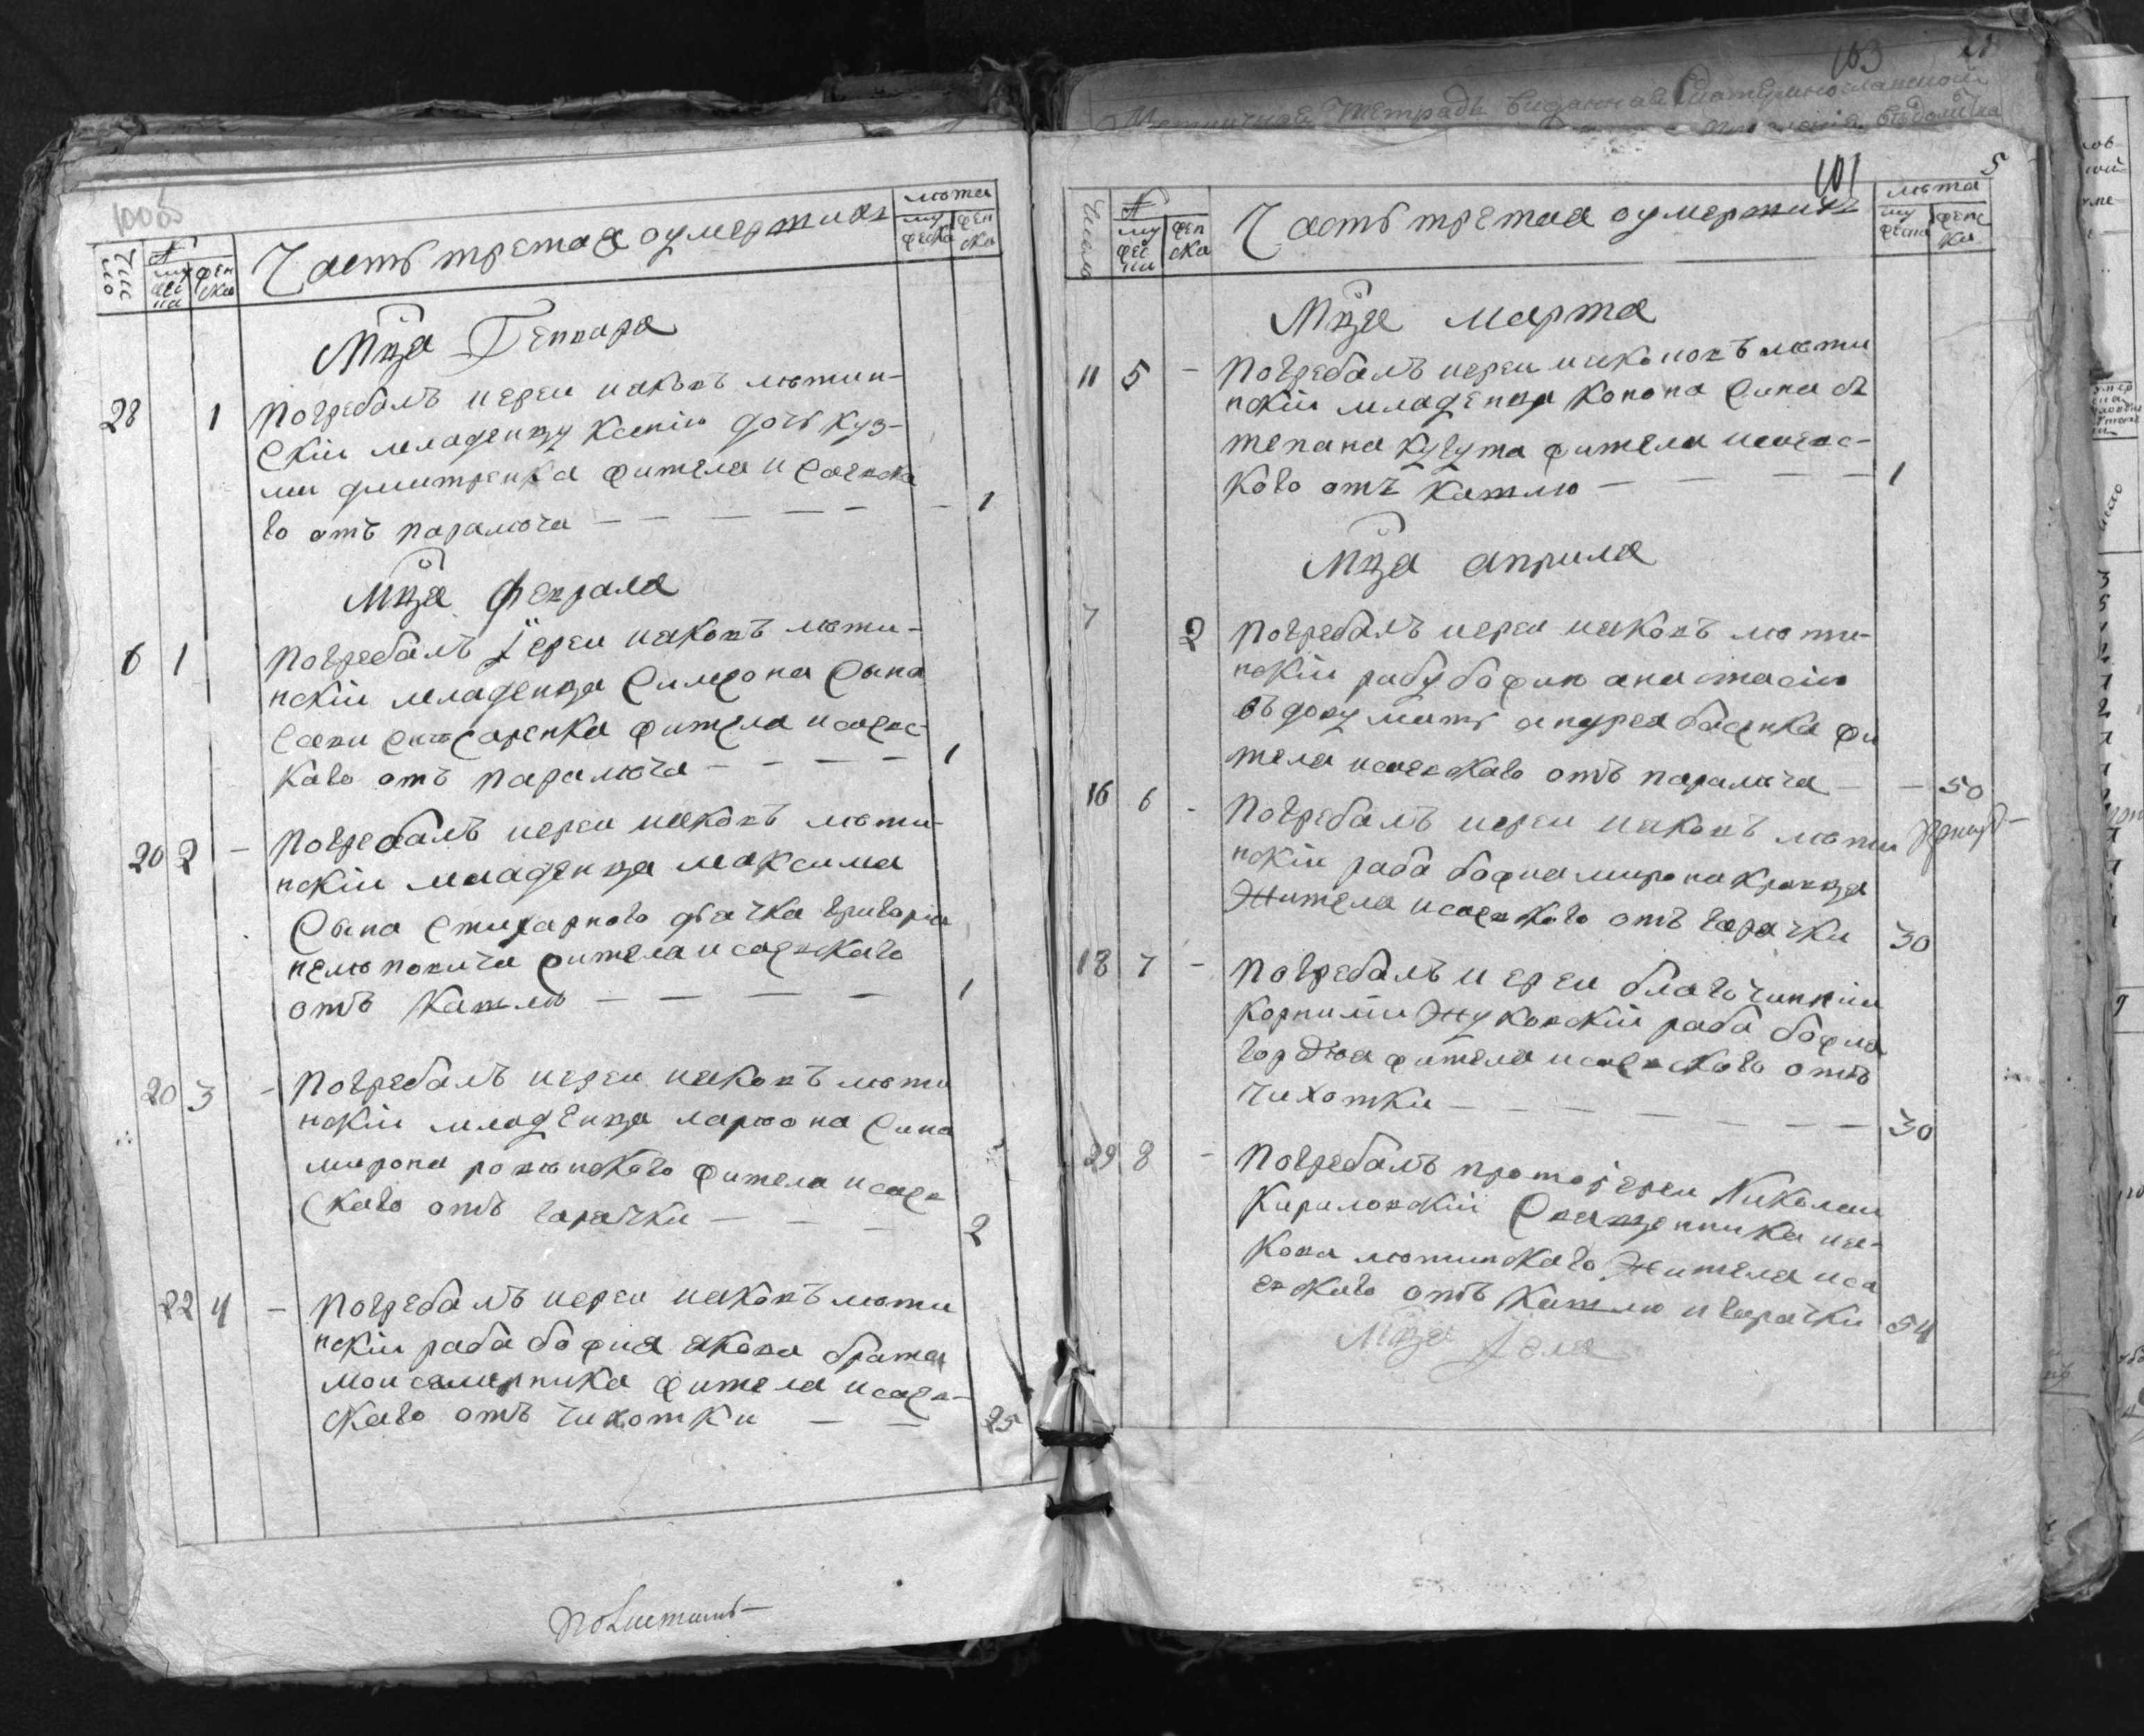 100об
Число
№
му
жес
ка
жен
ска
Часть третая оумершихъ
лѣта
му
жеска
жен
ска
Мца Генвара
28 1 погребалъ иереи иаковъ лютин-
скіи младенцу ксению дочь куз-
ми дмитренка жителя исаевска
го отъ паралюча — — — — — — 1
Мца Феврала
6 1 погребалъ Іереи иаковъ люти-
нскіи младенца симеона сына
сави жителя исаевс-
каго отъ паралюча — — — — 1
20 2 — погребалъ иереи иаковъ люти-
нскіи младенца максима
сына стихарного дьячка григория
жителя исаевскаго
отъ кашлю — — — — 1
20 3 — погребалъ иереи иаковъ люти
нскіи младенца лариона сина
мирона жителя исаев
скаго отъ гарячки — — — 2
22 4 — погребалъ иереи иаковъ люти
нскіи раба божия якова брата
жителя исаев-
скаго отъ чихотки — — 25
103
Метричная тетрадь виданная Екатеринославской
101 5
Число
№
му
жес
ка
жен
ска
Часть третая оумершихъ
лѣта
му
жеска
жен
ска
Мца марта
11 5 — погребалъ иереи иаковъ люти
нскіи младенца конона сина с
тепана кугута жителя исаевс-
кого отъ кашлю — — — — 1
Мца априля
7 2 погребалъ иереи иаковъ люти-
нскіи рабу божию анастасію
въдову мать андрея жи
теля исаевскаго отъ паралича — — 50
16 6 — погребалъ иереи иаковъ люти
нскіи раба божиа мирона кравца
жителя исаевскаго отъ гарячки 30
18 7 — погребалъ иереи благочинніи
корнилии жуковскіи раба божиа
гордѣя жителя исаевскаго отъ
чихотки — — — — — — — 30
29 8 — погребалъ протоіереи Николаи
кириловскіи священника иа-
кова лютинскаго жителя иса
евскаго отъ кашлю и гарячки 54
Мца